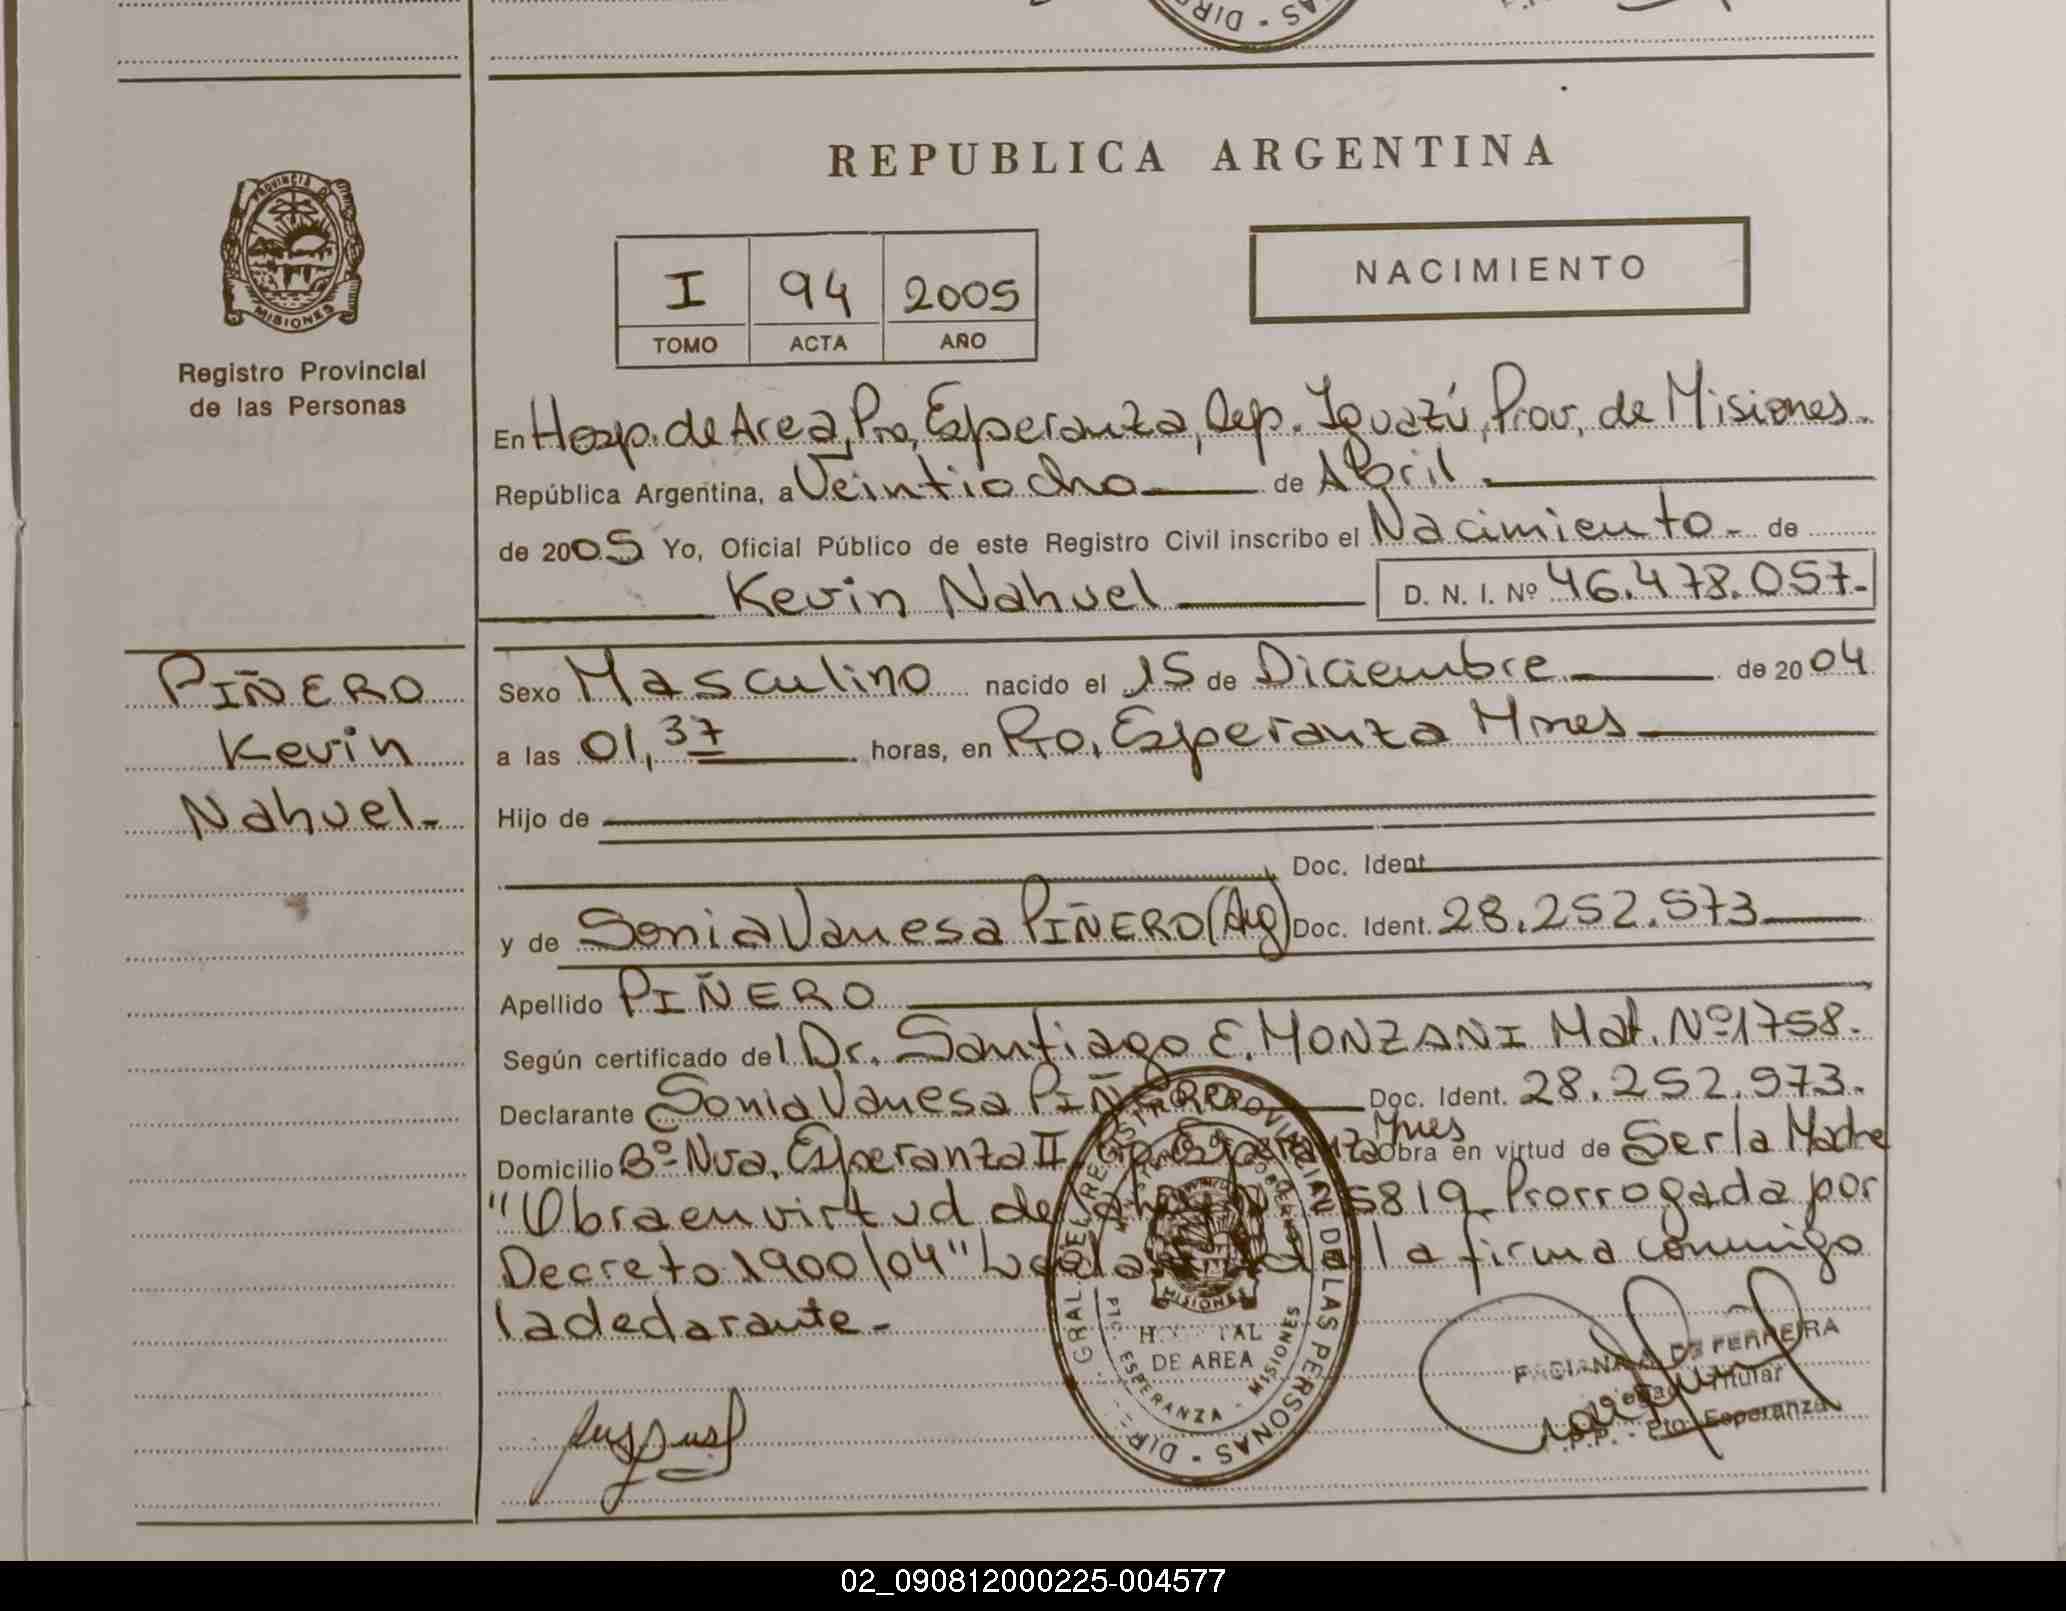 REPUBLICA ARGENTINA
PROVINCIA DE
MISIONES
Registro Provincial
de las Personas
I 94 2005
TOMO ACTA AÑO
NACIMIENTO
En Hosp. de Area, Pto, Esperanza, Dep. Iguazú, Prov, de Misiones.
República Argentina, a Veintiocho de ABril
de 2005 Yo, Oficial Público de este Registro Civil inscribo el Nacimiento- de
Kevin Nahuel D. N. I. Nº 46.478.057.-
PIÑERO
Kevin
Nahuel-
Sexo Masculino nacido el 15 de Diciembre de 2004
a las 01,37 horas, en Pto, Esperanza Mnes
Hijo de
Doc. Ident
y de Sonia Vanesa PIÑERO (Arg) Doc. Ident. 28.252.573
Apellido PIÑERO
Según certificado del Dr. Santiago E. MONZANI Mat. Nº 1758.
Declarante Sonia Vanesa PIÑERO Doc. Ident. 28.252.973.
Domicilio Bº Nva, Esperanza II, Pto Esperanza Mnes Obra en virtud de Ser la Madre
"Obra en virtud de la ley 25819 Prorrogada por
Decreto 1900/04" la firma conmigo
la declarante-
GRAL DEL REGISTRO PROVINCIAL DE LAS PERSONAS - DIR
MISIONES
HOSPITAL
DE AREA
PTO ESPERANZA - MISIONES
DE FERREIRA
Titular
R.P.P. - Pto. Esperanza
02_090812000225-004577